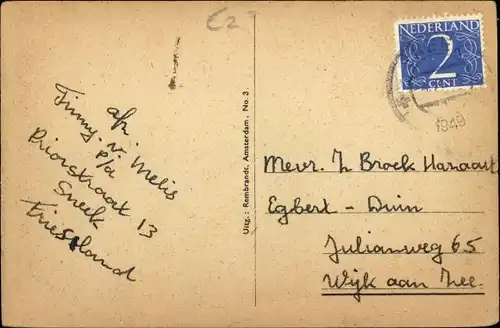 £2
afz.
Jinny. v. Melis
p/a
Priorstraat 13
Sneek
Friesland
Uitg.: Rembrandt, Amsterdam, No. 3.
NEDERLAND
2
CENT
1949
Mevr. Broek
Egbert - Duin
Julianweg 65
Wijk aan Zee.